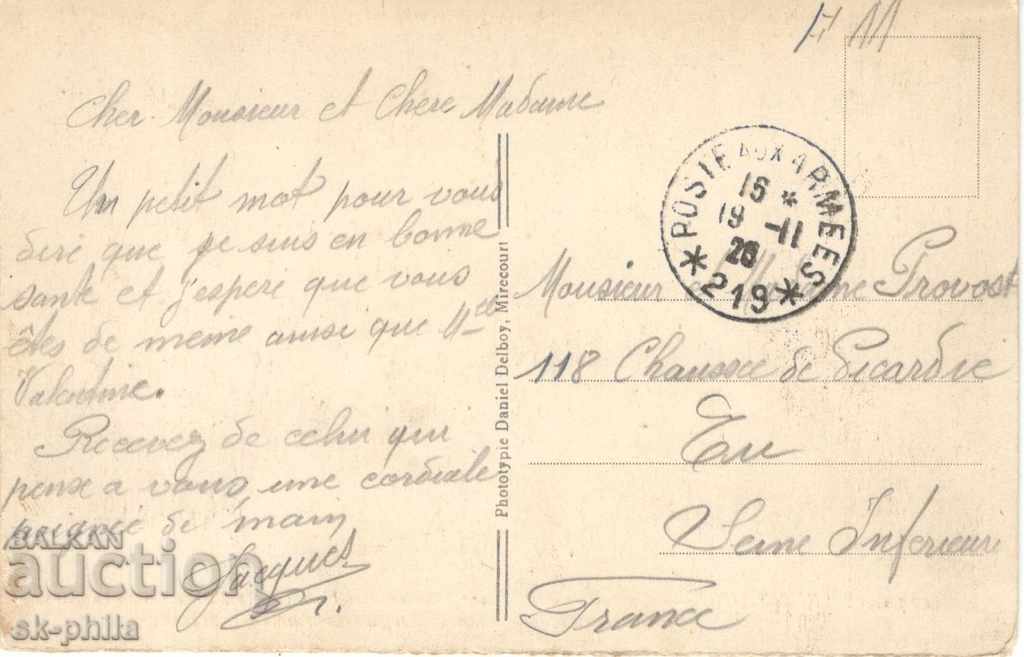 FM
Cher Monsieur et Chère Madame
Un petit mot pour vous
dire que je suis en bonne
santé et j'espère que vous
êtes de meme ainsi que Melle
Valentine.
Recevez de celui qui
pense a vous, une cordiale
poignée de main
Jacques
Phototypie Daniel Delboy, Mirecourt
POSTE AUX ARMEES
16 *
19 -11
26
* 219 *
Monsieur Madame Provost
118 Chaussée de Picardie
Eu
Seine Inferieure
France
BALKAN
auction
sk-phila